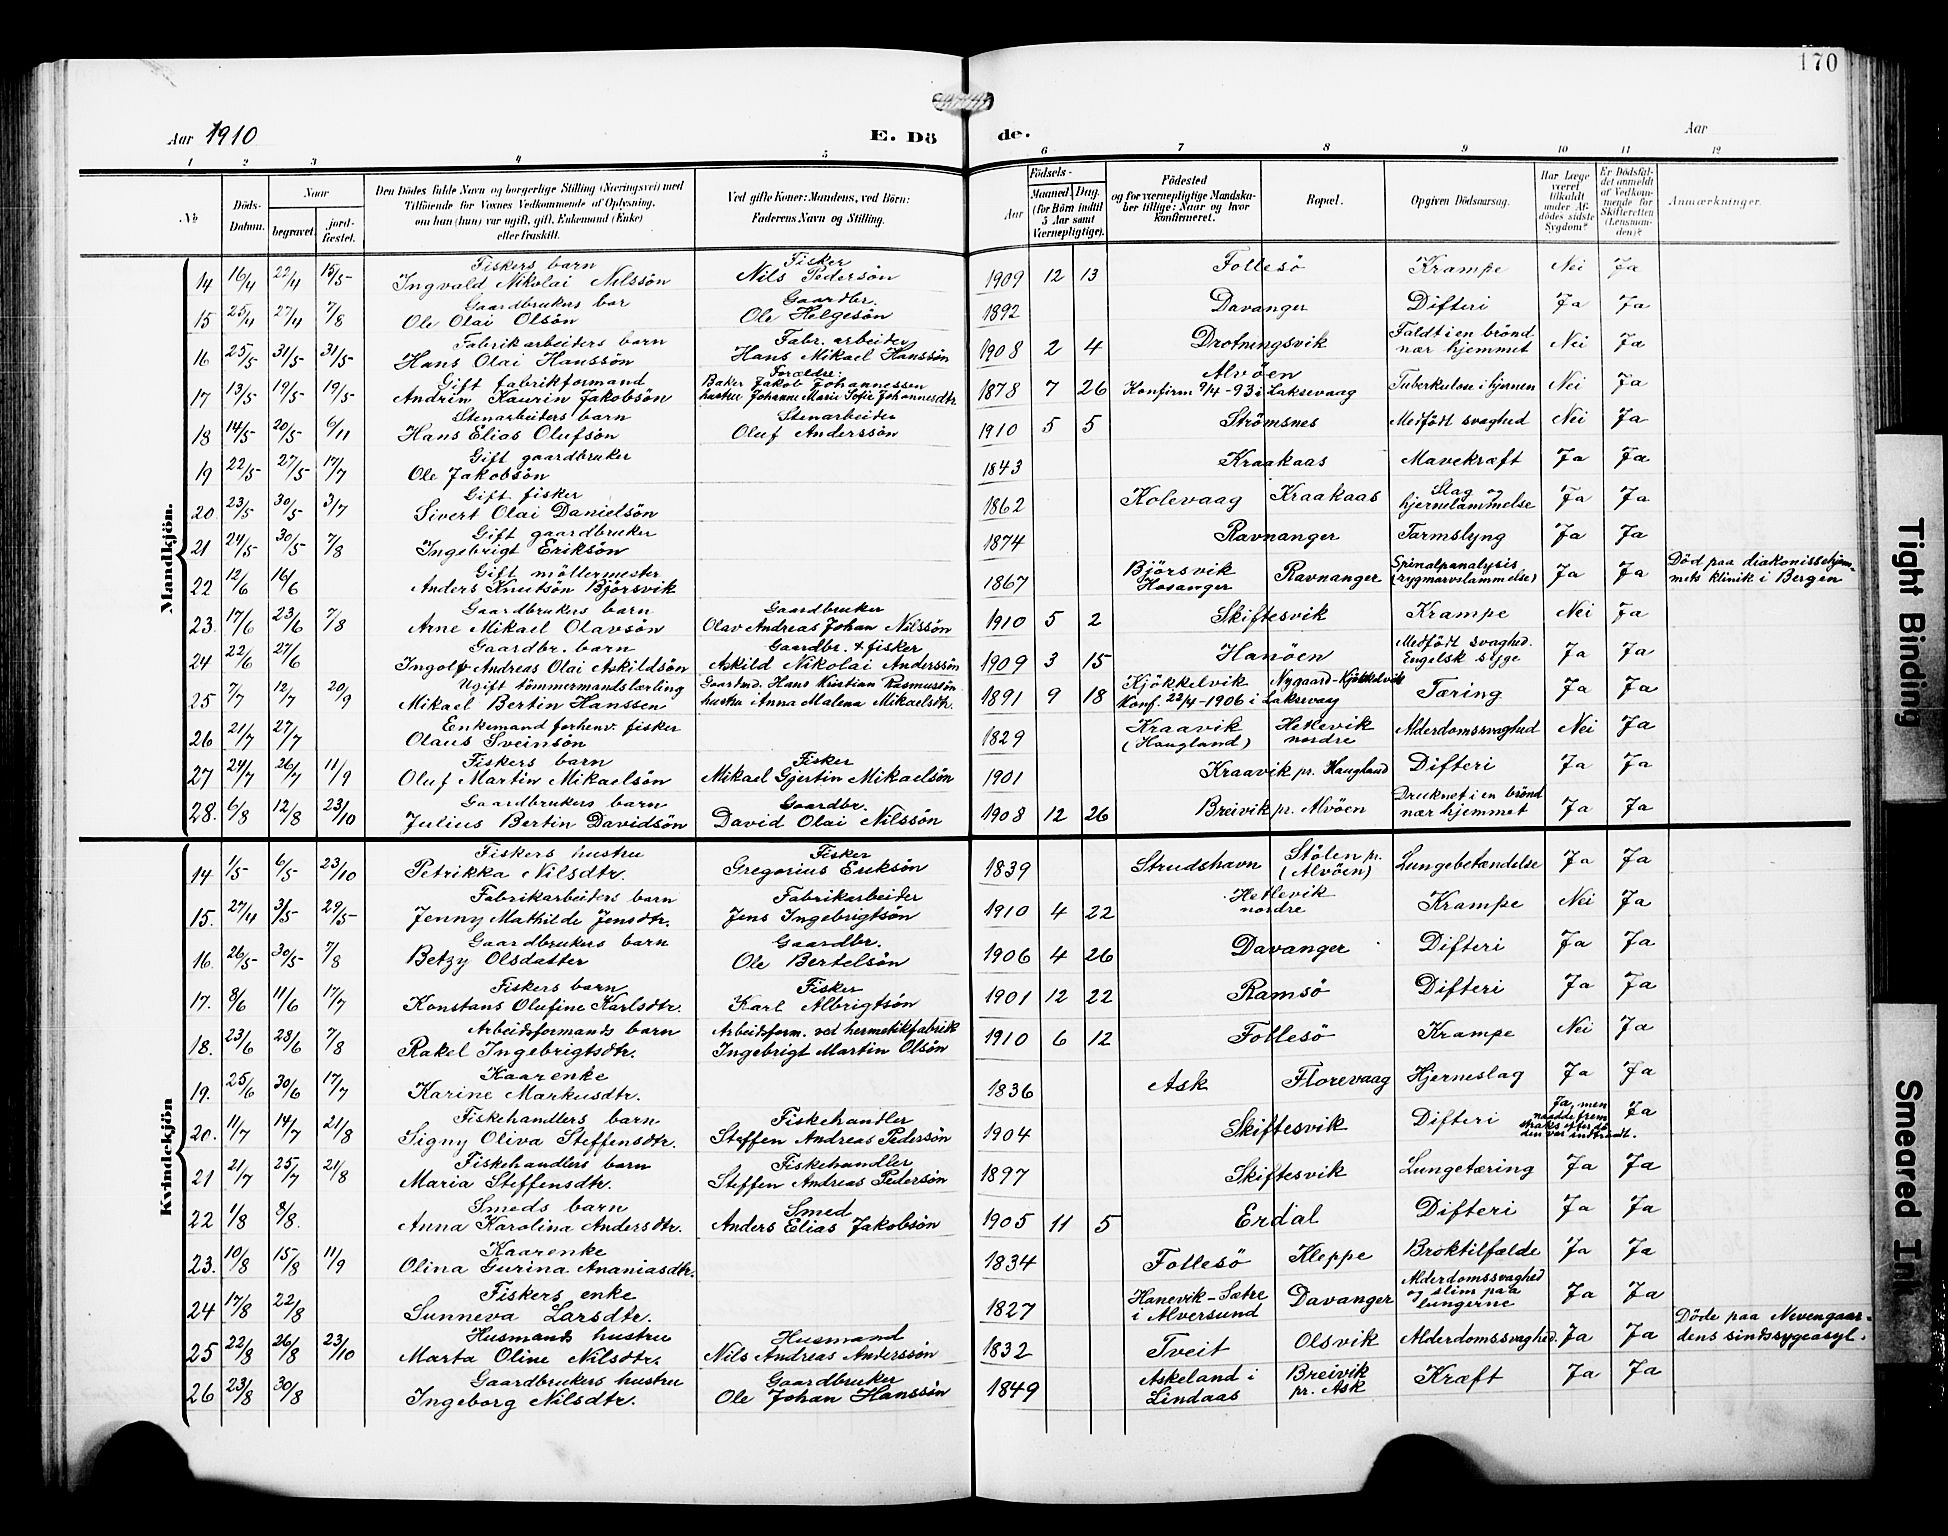 170
Aar 1910
E. Dö
de.
Aar
1 2 3 4 5 6 7 8 9 10 11 12
No
Döds-Datum.
Naar
begravet.
jord-fæstet.
Den Dödes fulde Navn og borgerlige Stilling (Næringsvei) med Tilföiende for Voxnes Vedkommende af Oplysning, om han (hun) var ugift, gift, Enkemand (Enke) eller fraskilt.
Ved gifte Koner: Mandens, ved Börn: Faderens Navn og Stilling.
Födsels-
Aar
Maaned. Dag.
(for Börn indtil 5 Aar samt Værnepligtige).
Födested og for værnepligtige Mandskaber tillige: Naar og hvor konfirmeret.
Bopæl.
Opgiven Dödsaarsag.
Har Læge været tilkaldt under Afdödes sidste Sygdom?
Er Dödsfaldet anmeldt af Vedkommende for Skifteretten (Lensmanden)?
Anmærkninger.
Mandkjön.
14 16/4 22/4 15/5- Fiskers barn Ingvald Nikolai Nilssön Fisker Nils Pedersön 1909 12 13 Follesö Krampe Nei Ja
15 25/4 27/4 7/8 Gaardbrukers bar Ole Olai Olsön Gaardbr. Ole Helgesön 1892 Davanger Difteri Ja Ja
16 25/5 31/5 31/5- Fabrikarbeiders barn Hans Olai Hanssön Fabr. arbeider Hans Mikael Hanssön 1908 2 4 Drotningsvik Faldt i en brönd nær hjemmet Nei Ja
17 13/5 19/5 19/5- Gift fabrikformand Andrin Kaurin Jakobsön Forældre: Baker Jakob Johannessen hustru Johanne Marie Sofie Johannesdtr 1878 7 26 Alvöen Konfirm 9/4-93 i Laksevaag Tuberkulose i hjernen Nei Ja
18 14/5 20/5 6/11 Stenarbeiders barn Hans Elias Olufsön Stenarbeider Oluf Anderssön 1910 5 5 Strömsnes Medfödt svaghed Nei Ja
19 22/5- 27/5 17/7 Gift gaardbruker Ole Jakobsön 1843 Kraakaas Mavekræft Ja Ja
20. 23/5 30/5 3/7 Gift fisker Sivert Olai Danielsön 1862 Kolevaag Kraakaas Slag og hjernelammelse Ja Ja
21 24/5- 30/5 7/8 Gift gaardbruker Ingebrigt Eriksön 1874 Ravnanger Tarmslyng Ja Ja
22 12/6 16/6 Gift möllermester Anders Knutsön Björsvik 1867 Björsvik Hosanger Ravnanger Spinalpanalysis (rygmarvslammelse) Ja Ja Död paa diakonissehjemmets klinik i Bergen
23. 17/6 23/6 7/8 Gaardbrukers barn Arne Mikael Olavsön Gaardbruker Olav Andreas Johan Nilssön 1910 5 2 Skiftesvik Krampe Nei Ja
24 22/6 27/6 Gaardbr. barn Ingolf Andreas Olai Askildsön Gaardbr. + fisker Askild Nikolai Anderssön 1909 3 15 Hanöen Medfödt svaghed. Engelsk syge Ja Ja
25 7/7 12/7 20/9 Ugift tömmermandslærling Mikael Bertin Hanssen Gaardmd. Hans Kristian Rasmussön hustru Anna Malena Mikaelsdtr. 1891 9 18 Kjökkelvik Konf. 22/4-1906 i Laksevaag Nygaard-Kjökkelvik Tæring Ja Ja
26 21/7 27/7 Enkemand forhenv. fisker Olaus Sveinsön 1829 Kraavik (Haugland) Hetlevik nordre Alderdomssvaghed Nei Ja
27 24/7 26/7 11/9 Fiskers barn Oluf Martin Mikaelsön Fisker Mikael Gjertin Mikaelsön 1901 Kraavik pr. Haugland Difteri Ja Ja
28. 6/8 12/8 23/10 Gaardbrukers barn Julius Bertin Davidsön Gaardbr. David Olai Nilssön 1908 12 26 Breivik pr. Alvöen Druknet i en brönd nær hjemmet Ja Ja
Kvindekjön
14 1/5 6/5 23/10 Fiskers hustru Petrikka Nilsdtr. Fisker Gregorius Eriksön 1839 Strudshavn Stölen pr. (Alvöen) Lungebetændelse Ja Ja
15. 27/4 3/5 29/5- Fabrikarbeiders barn Jenny Mathilde Jensdtr. Fabrikarbeider Jens Ingebrigtsön 1910 4 22 Hetlevik nordre Krampe Nei Ja
16. 26/5- 30/5- 7/8 Gaardbrukers barn Betzy Olsdatter Gaardbr. Ole Bertelsön 1906 4 26 Davanger Difteri Ja Ja
17. 8/6 11/6 17/7 Fiskers barn Konstans Olufine Karlsdtr. Fisker Karl Albrigtsön 1901 12 22 Ramsö Difteri Ja Ja
18. 23/6 28/6 7/8 Arbeidsformands barn Rakel Ingebrigtsdtr. Arbeidsform. ved hermetikfabrik Ingebrigt Martin Olsön 1910 6 12 Follesö Krampe Nei Ja
19. 25/6 30/6 17/7 Kaarenke Karine Markusdtr. 1836 Ask Florevaag Hjerneslag Ja Ja
20. 11/7 14/7 21/8 Fiskehandlers barn Signy Oliva Steffensdtr. Fiskehandler Steffen Andreas Pedersön 1904 Skiftesvik Difteri Ja, men naadde frem straks efter döden var indtraadt. Ja
21 21/7 25/7 21/8 Fiskehandlers barn Maria Steffensdtr. Fiskehandler Steffen Andreas Pedersön 1897 Skiftesvik Lungetæring Ja Ja
22 1/8 8/8. Smeds barn Anna Karolina Andersdtr. Smed Anders Elias Jakobsön 1905 11 5 Erdal Difteri Ja Ja
23. 10/8 15/8 11/9 Kaarenke Olina Gurina Ananiasdtr. 1834 Follesö Kleppe Broktilfælde Ja Ja
24 17/8 22/8 Fiskers enke Sunneva Larsdtr. 1827 Hanevik-Sætre i Alversund Davanger Alderdomssvaghed og slim paa lungerne Ja Ja
25 22/8 26/8 23/10 Husmands hustru Marta Oline Nilsdtr. Husmand Nils Andreas Anderssön 1832 Tveit Olsvik Alderdomssvaghed. Ja Ja Döde paa Nevengaardens sindssygeasyl.
26 23/8 30/8 Gaardbrukers hustru Ingeborg Nilsdtr. Gaardbruker Ole Johan Hanssön 1849 Askeland i Lindaas Breivik pr. Ask Kræft Ja Ja
Tight Binding
Smeared Ink